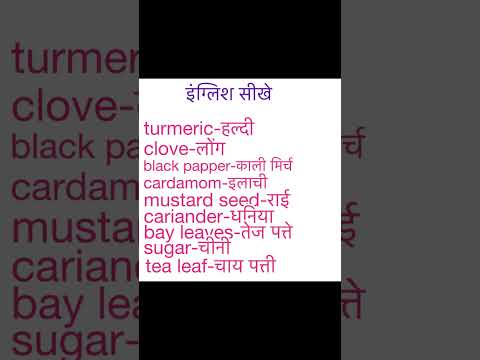 इंग्लिश सीखे
turmeric-हल्दी
clove-लोंग
black papper-काली मिर्च
cardamom-इलाची
mustard seed-राई
cariander-धनिया
bay leaves-तेज पत्ते
sugar-चीनी
tea leaf-चाय पत्ती